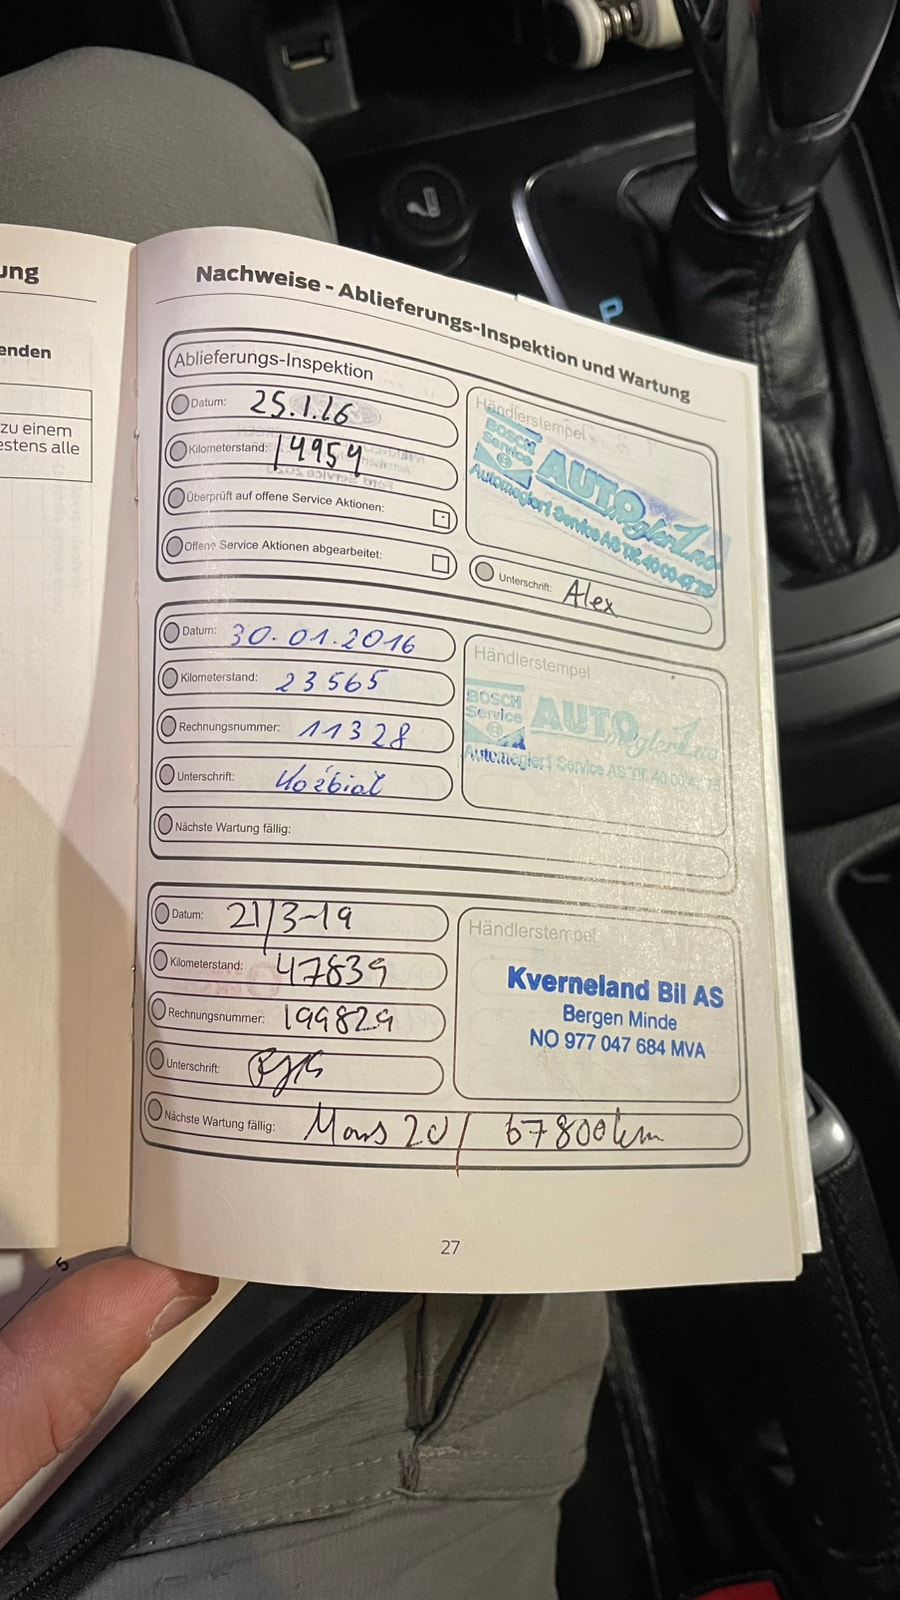 ung
enden
zu einem
estens alle
Nachweise - Ablieferungs-Inspektion und Wartung
Ablieferungs-Inspektion
Datum: 25.1.16
Kilometerstand: 14954
Überprüft auf offene Service Aktionen:
Offene Service Aktionen abgearbeitet:
Händlerstempel
BOSCH
Service
AUTO
Automegleri Service AS Tlf. 40 00
Unterschrift: Alex
Datum: 30.01.2016
Kilometerstand: 23565
Rechnungsnummer: 11328
Unterschrift:
Nächste Wartung fällig:
Händlerstempel
BOSCH
Service
AUTO
Automegleri Service AS Tlf. 40 00
Datum: 21/3-19
Kilometerstand: 47839
Rechnungsnummer: 199829
Unterschrift:
Nächste Wartung fällig: Mars 20/ 67800km
Händlerstempel
Kverneland Bil AS
Bergen Minde
NO 977 047 684 MVA
27
5
P